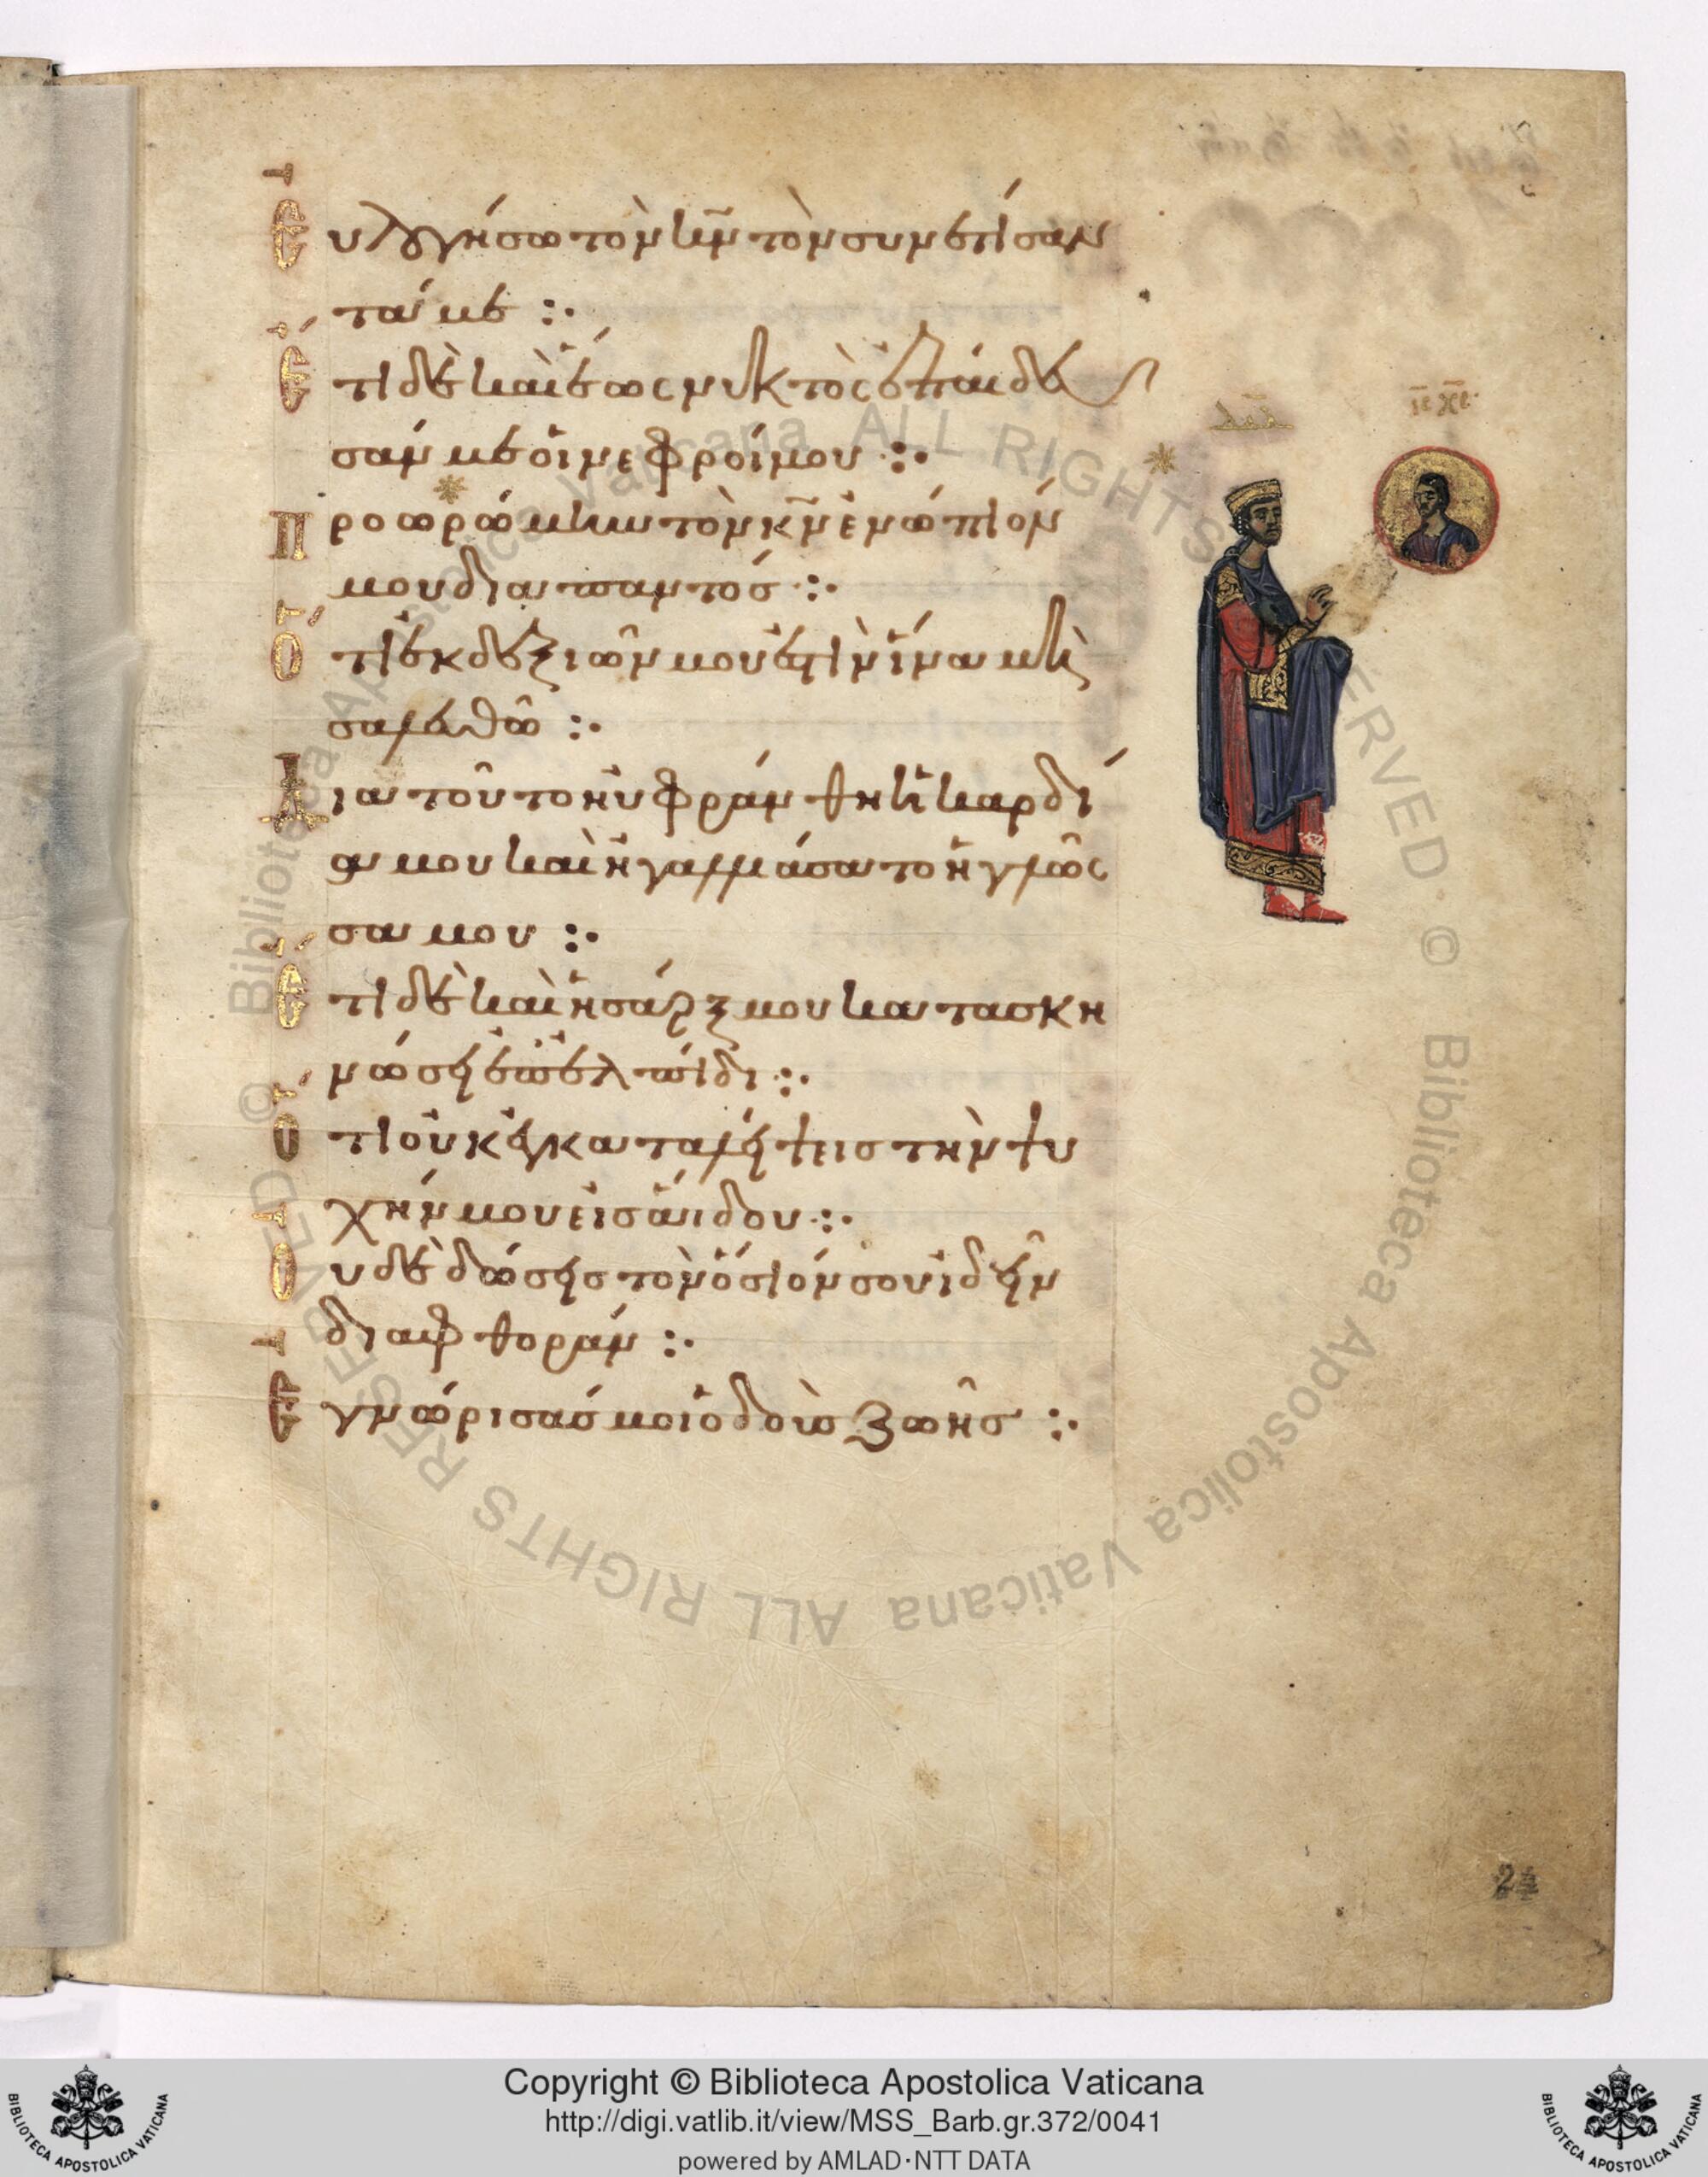 Εὐλογήσω τὸν κ̅ν̅ τὸν συνετίσαν
τά με :·
Ἔτι δὲ καὶ ἕως νυκτὸς ἐπαίδευ
σάν με οἱ νεφροί μου :·
Προωρώμην τὸν κ̅ν̅ ἐνώπιόν
μου διαπαντός :·
Ὅτι ἐκ δεξιῶν μού ἐστιν ἵνα μὴ
σαλευθῶ :·
Διατοῦτο ηὐφράνθη ἡ καρδί
α μου καὶ ἠγαλλιάσατο ἡ γλῶσ
σα μου :·
Ἔτι δὲ καὶ ἡ σάρξ μου κατασκη
νώσει ἐπ' ἐλπίδι :·
Ὅτι οὐκ ἐγκαταλείψεις τὴν ψυ
χήν μου εἰς ἅιδου :·
Οὐδὲ δώσεις τὸν ὅσιόν σου ἰδεῖν
διαφθοράν :·
Ἐγνώρισάς μοι ὁδοὺς ζωῆς :·
δα̅δ̅
ι̅ς̅ χ̅ς̅
Copyright © Biblioteca Apostolica Vaticana
http://digi.vatlib.it/view/MSS_Barb.gr.372/0041
powered by AMLAD·NTT DATA
BIBLIOTECA APOSTOLICA VATICANA
BIBLIOTECA APOSTOLICA VATICANA
© Biblioteca Apostolica Vaticana ALL RIGHTS RESERVED © Biblioteca Apostolica Vaticana ALL RIGHTS RESERVED